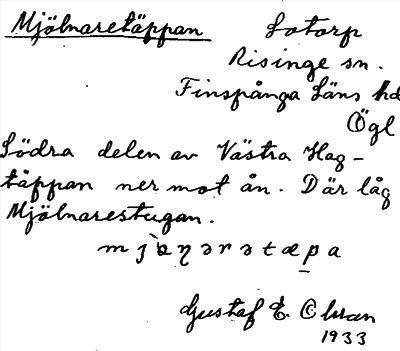 Mjölnaretäppan
Lotorp
Risinge sn.
Finspånga Läns hd
Ögl
Södra delen av Västra Hag-
täppan ner mot ån. Där låg
Mjölnarestugan.
Gustaf E. Olsson
1933